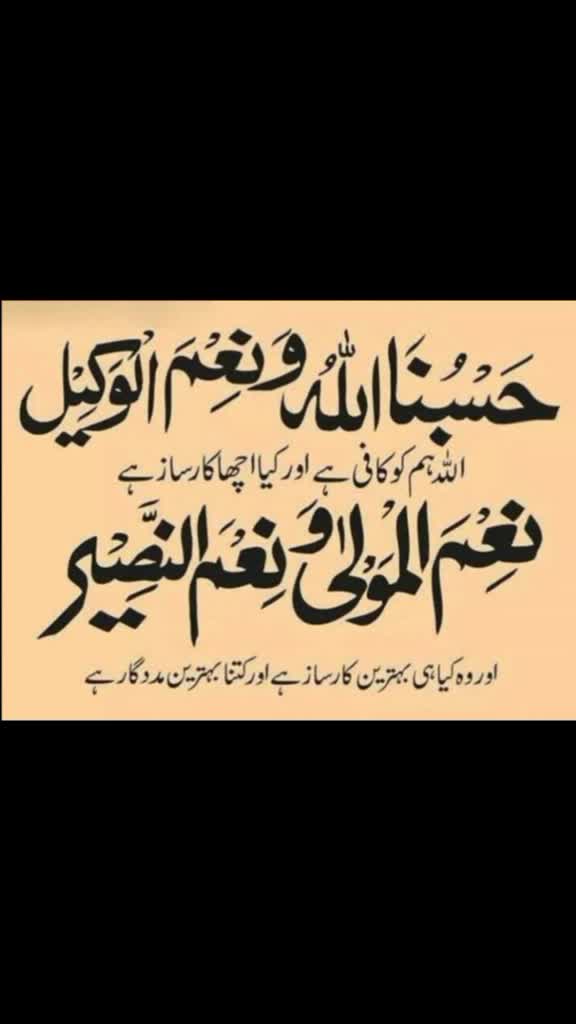 حَسْبُنَا اللّٰهُ وَنِعْمَ الْوَكِيْل
اللہ ہم کو کافی ہے اور کیا اچھا کارساز ہے
نِعْمَ الْمَوْلٰی وَنِعْمَ النَّصِيْر
اور وہ کیا ہی بہترین کارساز ہے اور کتنا بہترین مددگار ہے